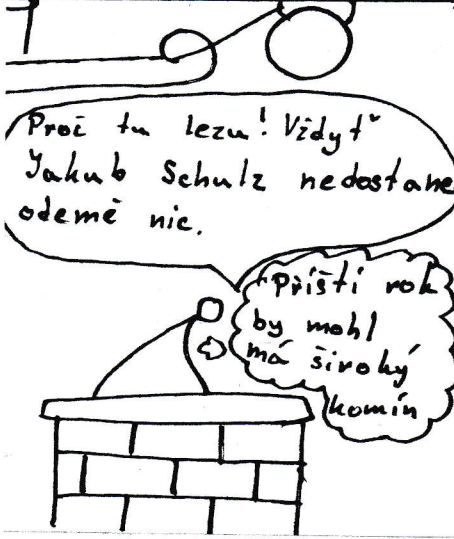 Proč tu lezu! Vždyť
Jakub Schulz nedostane
odemě nic.
Příští rok
by mohl
má široký
komín